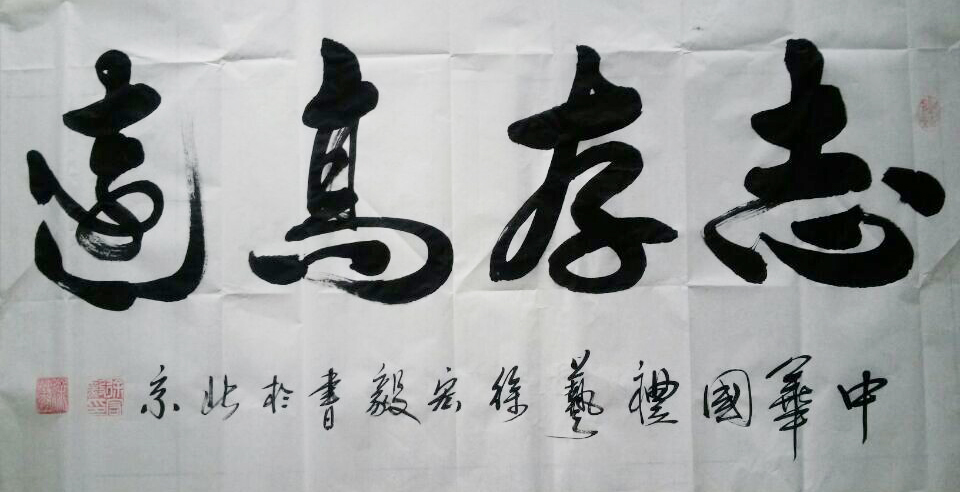 志存高遠
中華國禮藝徐宏毅書於北京